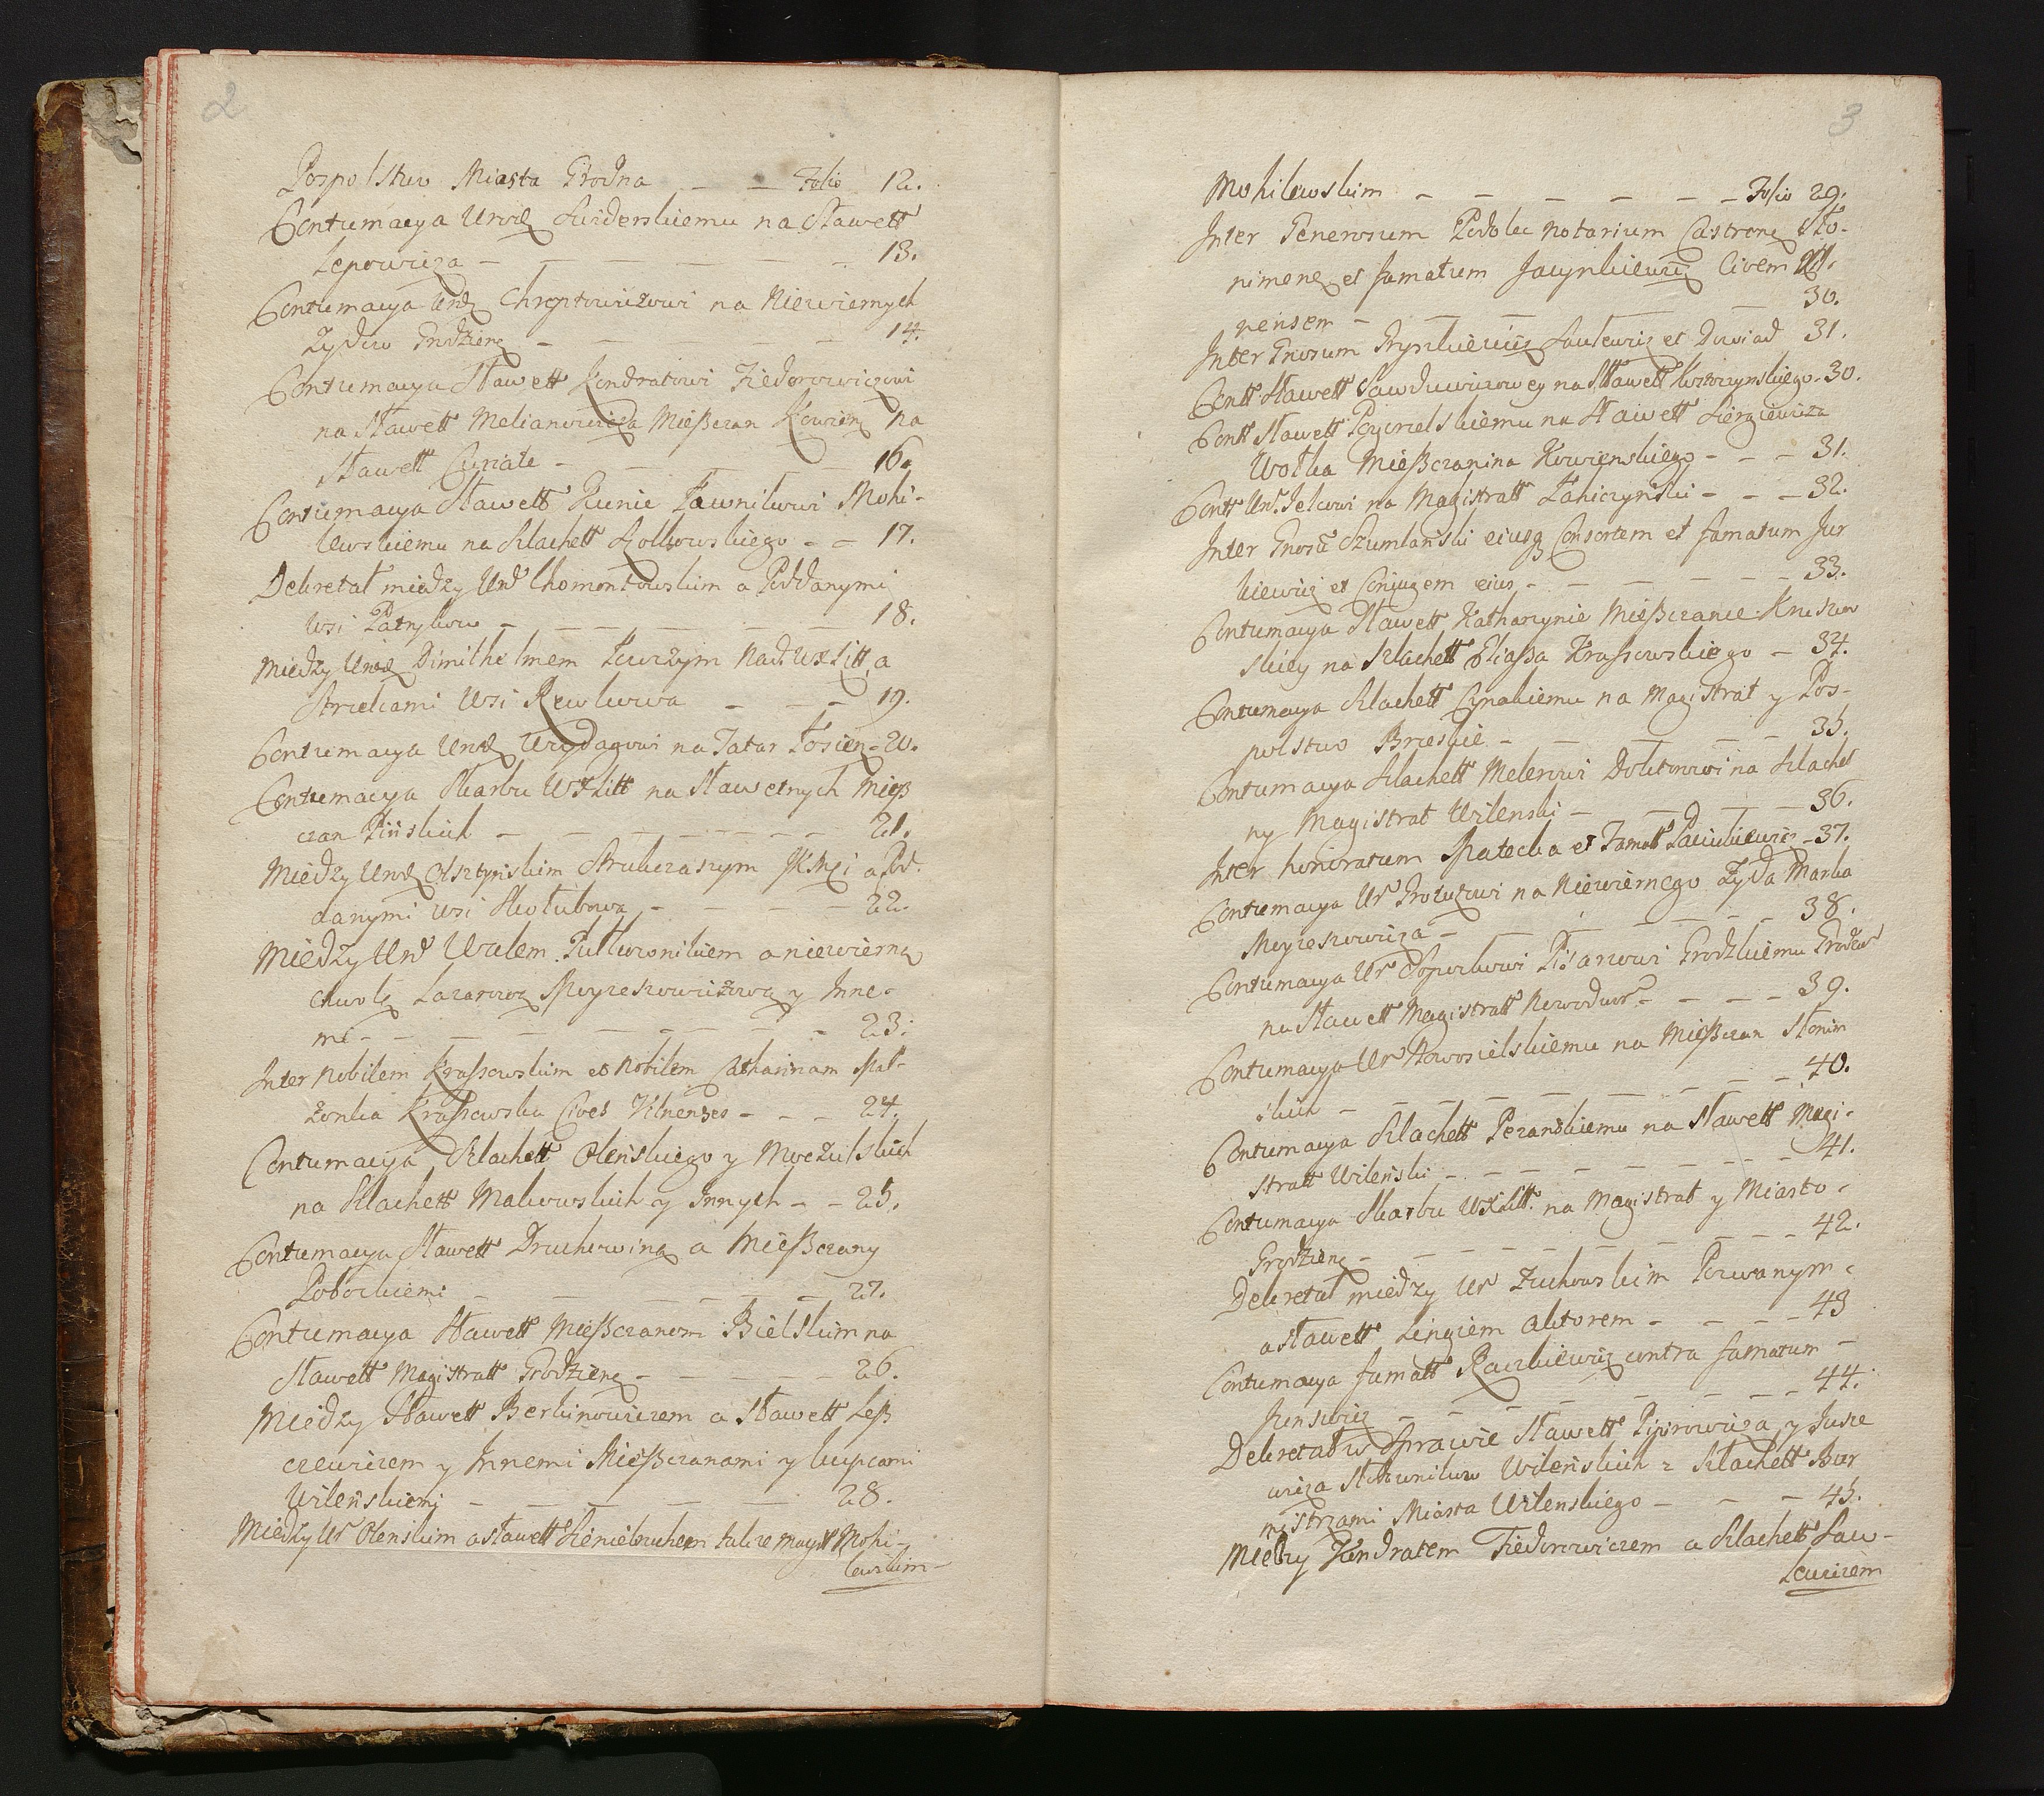 2
Pospolstwo Miasta Grodna — — Folio 12.
Contumacya Urod Swiderskiemu na Sławett
Lepowicza — — — — — — — 13.
Contumacya Urod Chreptowiczowi na Niewiernych
Żydow Grodzien — — — — — 14.
Contumacya Sławett Kondratowi Fiedorowiczowi
na Sławett Melianowicza Mießczan Kowien na
Sławett — — — — 16.
Contumacya Sławett Kunie Ławnikowi Mohi-
lewskiemu na Szlachett Szołkowskiego — — 17.
Dekretał między Urod Chomontowskim a Poddanymi
wsi Patrykow — — — — — — 18.
Między Urod Dimilhelmem Łowczym Nad: WXLitt, a
Strzelcami wsi Rewkowa — — — 19.
Contumacya Urod na Tatar Łosien — 20.
Contumacya Skarbu WXLitt na Sławetnych Mieß
czan Pińskich — — — — — — — 21.
Między Urod Olsztynskim Strukczaszym a Pod-
danymi wsi Hołubowa — — — — — 22.
Między Urod Wulem Pułkownikiem a niewierną
Łazarową Moyzeszowiczową y Inne-
mi — — — — — — — — 23.
Inter Nobilem Kraßowskim et Nobilem Catharinam Mał-
żonka Kraßowska Cives Vilnenses — — — 24.
Contumacya Szlachett Olenskiego y Moczulskich
na Szlachett Makowskich y Innych — — 25.
Contumacya Sławett Druchowiną a Mießczany
Pobockiemi — — — — — — 27.
Contumacya Sławett Mießczanom Bielskim na
Sławett Magistratt Grodzien — — — — — 26.
Między Sławett Berkinowiczem a Sławett Leß
czewiczem y Innemi Mießczanami y kupcami
Wileńskiemi — — — — — — 28.
Między Ur Olenskim a Sławett także magst Mohi-
lewskim —
3
Mohilewskim — — — — — — Folio 29.
Inter Generosum Podolec Notarium Castrens Sło-
nimens et famatum Jacynkiewicz Civem Vil-
nensem — — — — — 30.
Inter Gnosum Hryszkiewicz Saulewicz et Dowiad 31.
Contt Sławett Sawdowiczowey na Sławett Korozynskiego — 30.
Contt Sławett Pogorzelskiemu na Sławett Siergiewicza
Wołka Mießczanina Kowienskiego — — — 31.
Contt Ur Jelcowi na Magistratt Łohiczynski — — — 32.
Inter Gnosu Szumlanski eiusq Consortem et famatum Jur
kiewicz et Coniugem eius — — — — — — 33.
Contumacya Sławett Katharzynie Mießczance Kruszew
skiey na Szlachett Eliaßa Kraßowskiego — 34.
Contumacya Szlachett Cynakiemu na Magistrat y Pos-
polstwo Brzeskie — — — — — — 35.
Contumacya Szlachett Melerowi Doktorowi na Szlachet
ny Magistrat Wilenski — — — — — 36.
Inter honoratum Spatecka et Famatt Paciukiewicz — 37.
Contumacya Ur Grozuzowi na Niewiernego Żyda Marka
Moyzeszowicza — — — — — 38.
Contumacya Ur Soporkowi Pisarzowi Grodzkiemu Grodzień
na Sławett Magistratt Nowodwor — — — — 39.
Contumacya Ur Nowosielskiemu na Mießczan Słonim
skich — — — — — — — — 40.
Contumacya Szlachett Pezanskiemu na Sławett Magi-
stratt Wileński — — — — — — — 41.
Contumacya Skarbu WXLitt. na Magistrat y Miasto —
Grodzien — — — — — — — — 42.
Dekretał między Ur Zuchowskim Pozwanym —
a Sławett Lengiem Aktorem — — — — 43
Contumacya famatt Raczkiewicz contra famatum —
Junswicz — — — — — — — 44.
Dekretał w Sprawie Sławett Piprowicza y Jusie
wicza Wileńskich z Szlachett Bur
mistrzami Miasta Wileńskiego — — — 45.
Miedzy Kondratem Fiedorowiczem a Szlachett Saw-
lewiczem